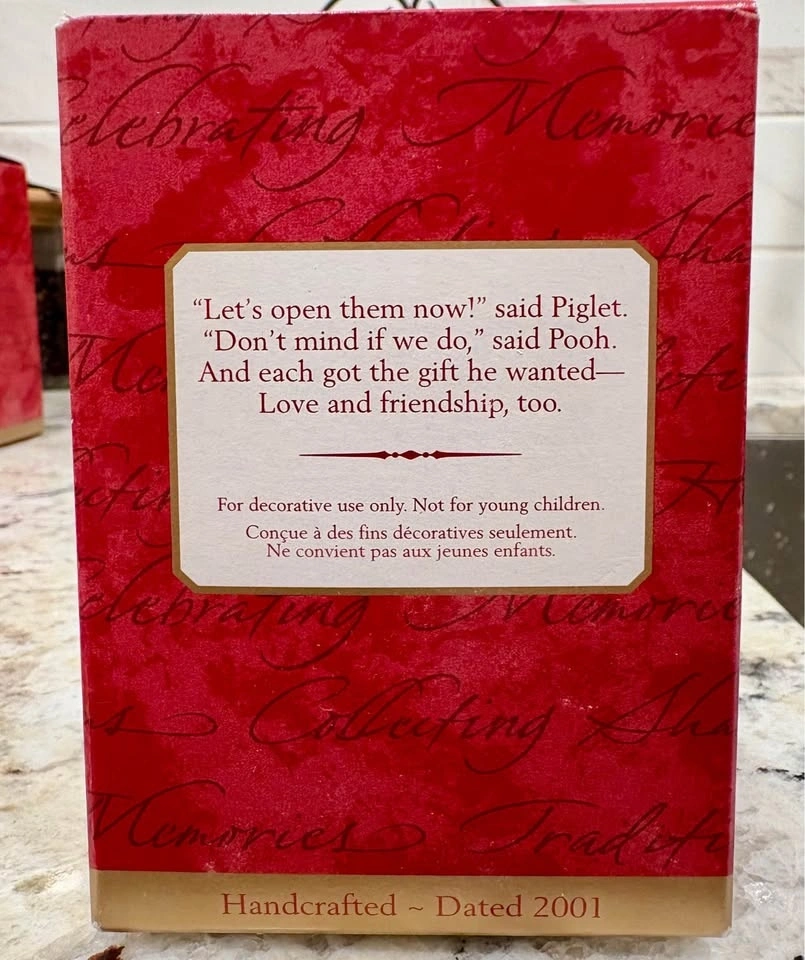 Celebrating Memories
"Let's open them now!" said Piglet.
"Don't mind if we do," said Pooh.
And each got the gift he wanted—
Love and friendship, too.
For decorative use only. Not for young children.
Conçue à des fins décoratives seulement.
Ne convient pas aux jeunes enfants.
elebrating Memorie
Collecting Sha
Memories Traditi
Handcrafted ~ Dated 2001